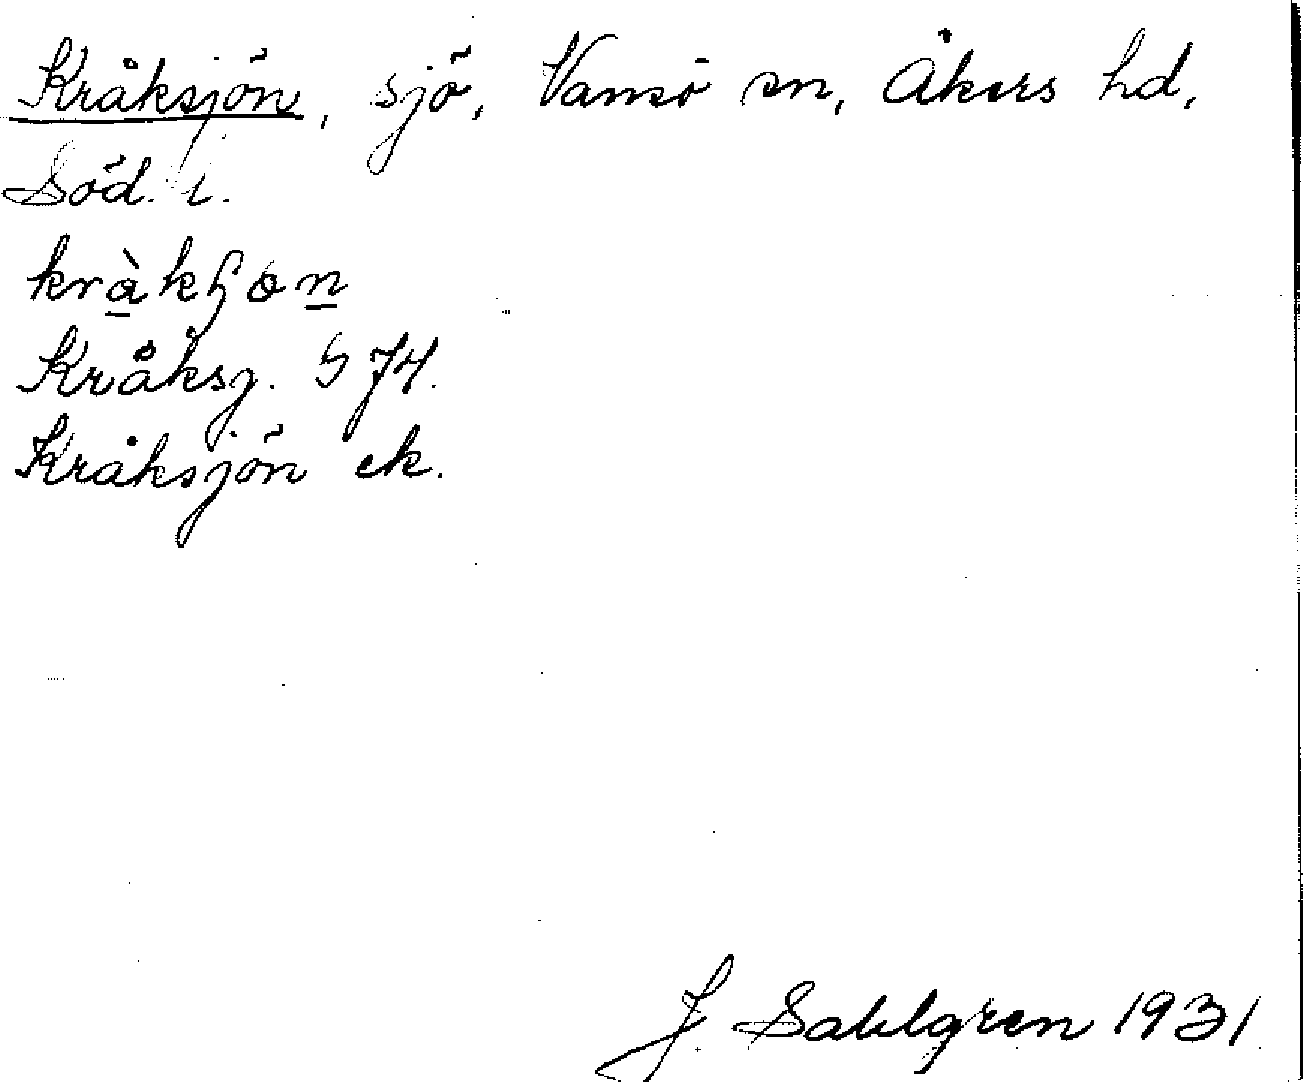 Kråksjön, sjö, Vansö sn, Åkers hd,
Söd. l.
Kråksj. S 74.
Kråksjön ek.
J. Sahlgren 1931